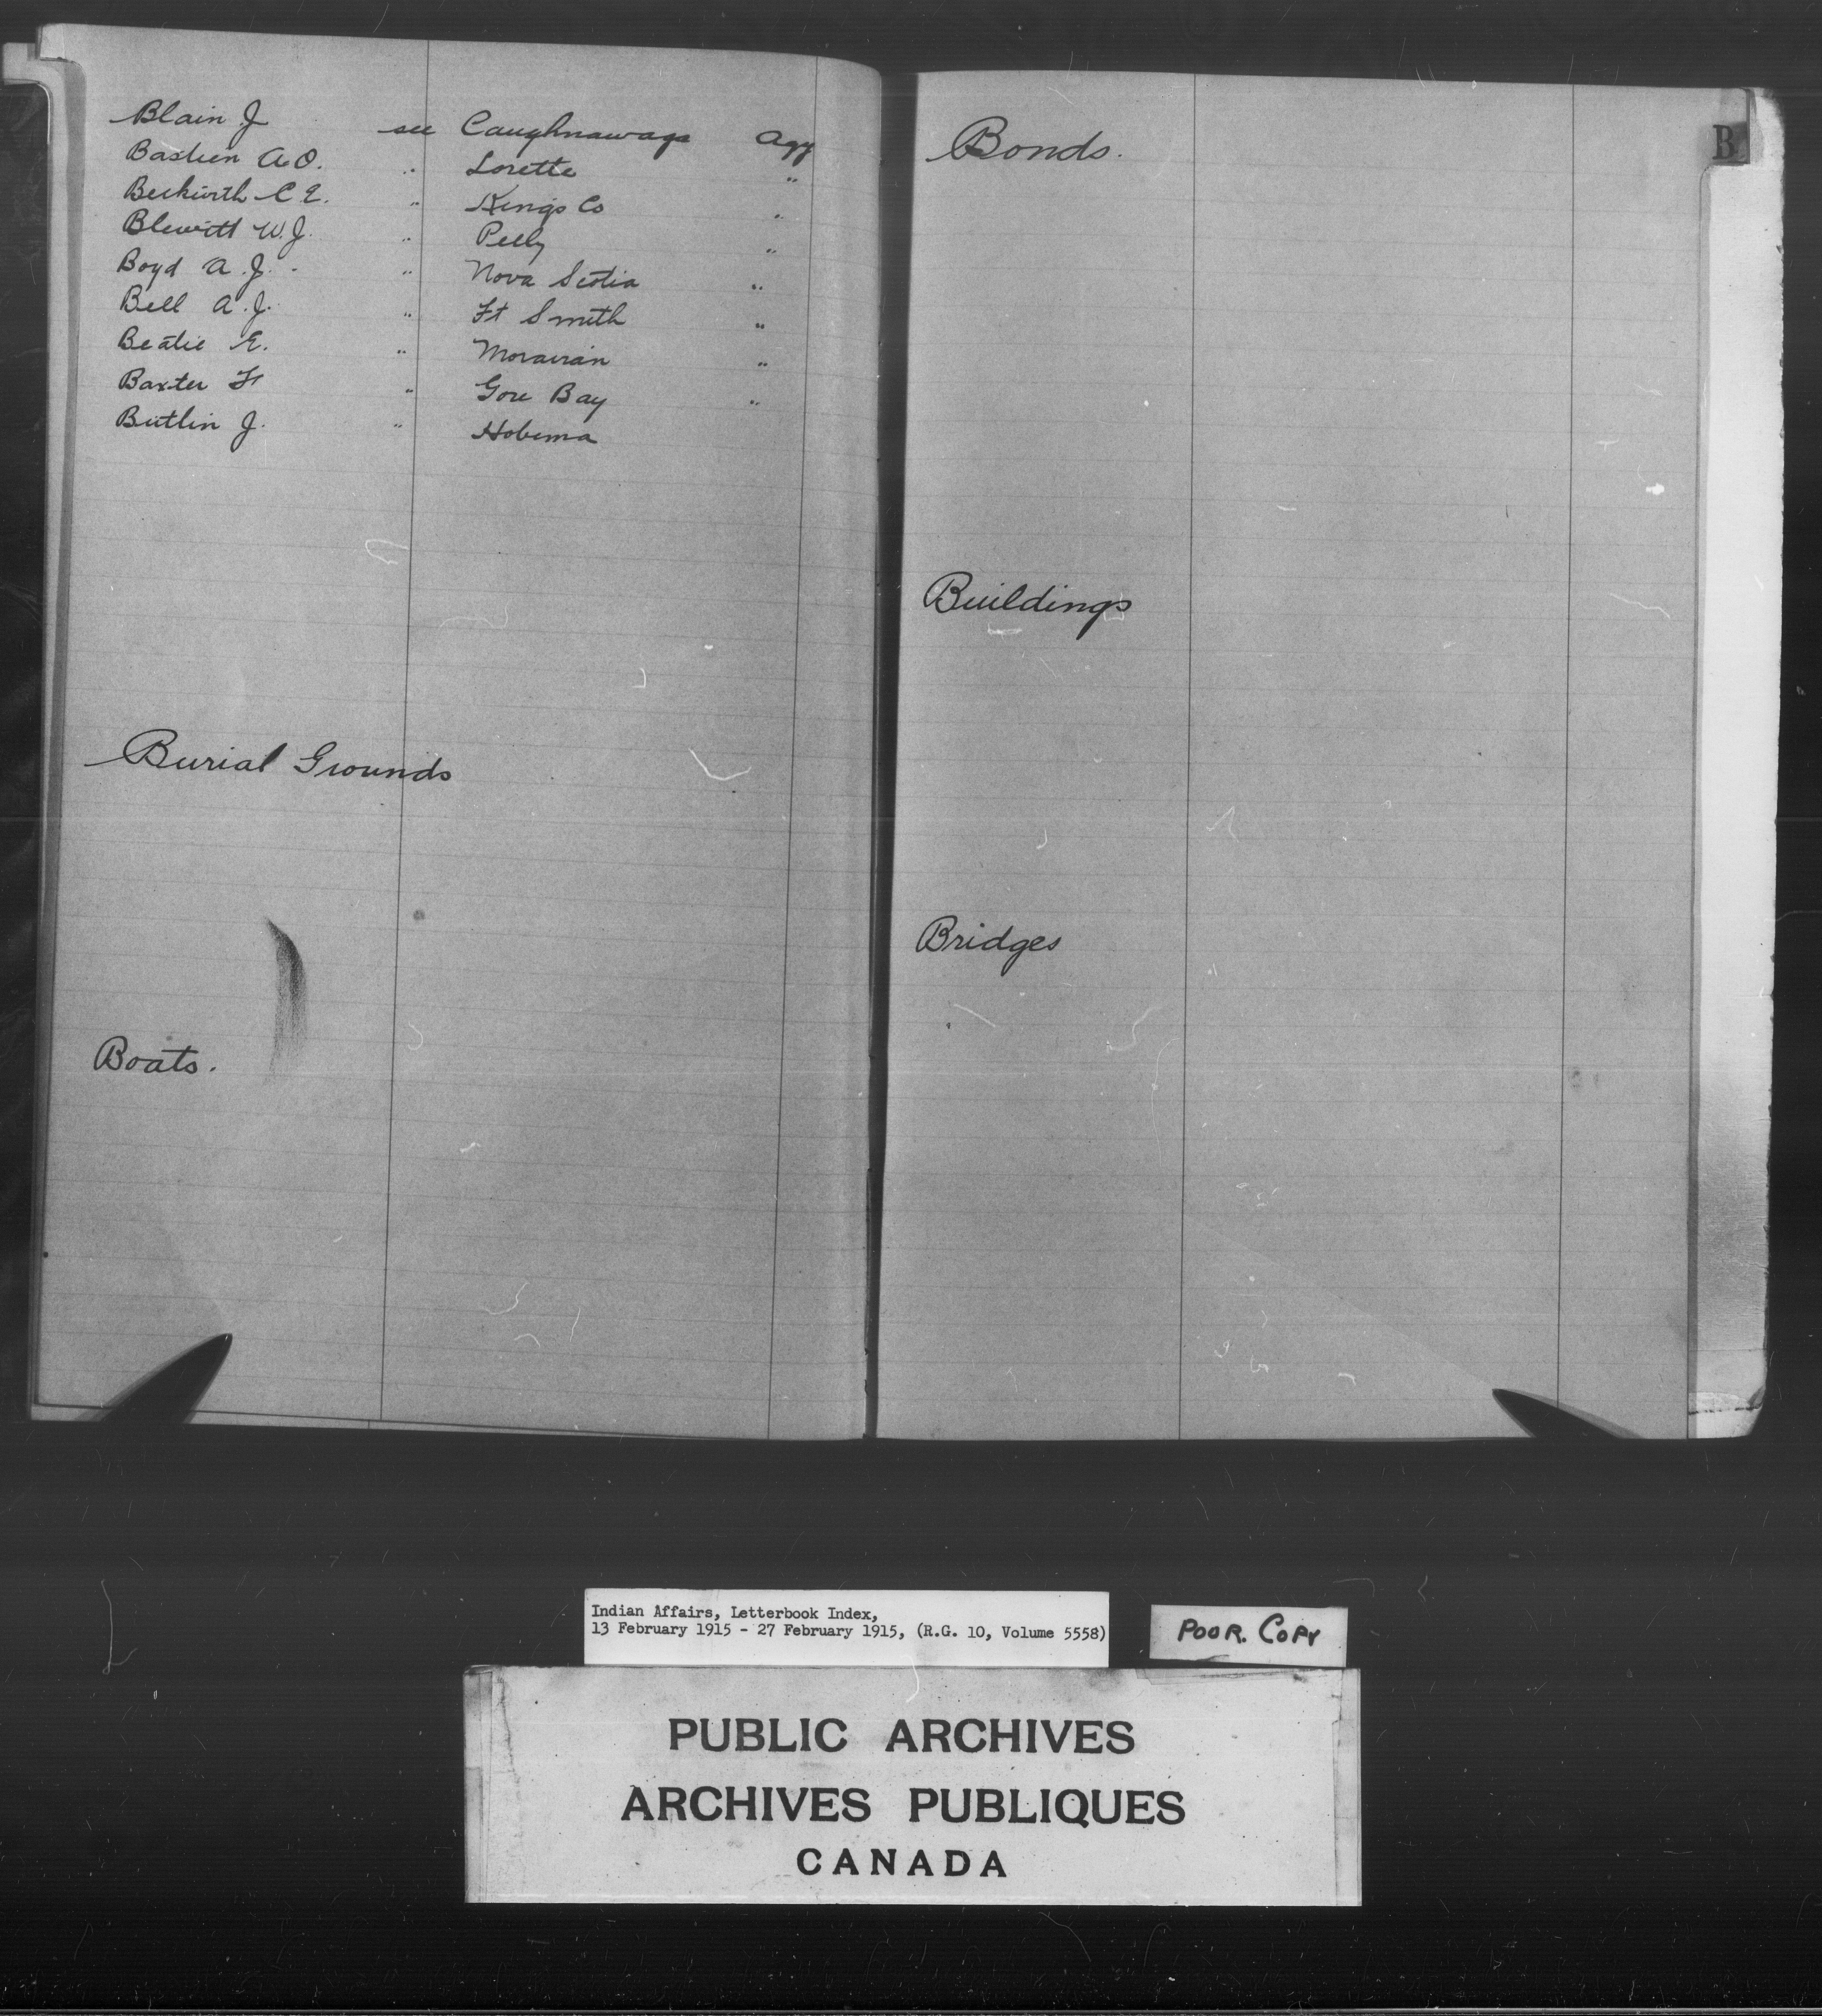 Blain J see Caughnawaga Agy
Bastien A.O. " Lorette "
Beckwith C E. " Kings Co "
Blewett W.J. " Pelly "
Boyd A.J. " Nova Scotia "
Bell A.J. " Ft Smith "
Beatie E. " Moravian "
Baxter " Gore Bay "
Butlin J. " Hobema
Burial Grounds
Boats.
Bonds.
B
Buildings
Bridges
Indian Affairs, Letterbook Index,
13 February 1915 - 27 February 1915, (R.G. 10, Volume 5558)
POOR. COPY
PUBLIC ARCHIVES
ARCHIVES PUBLIQUES
CANADA